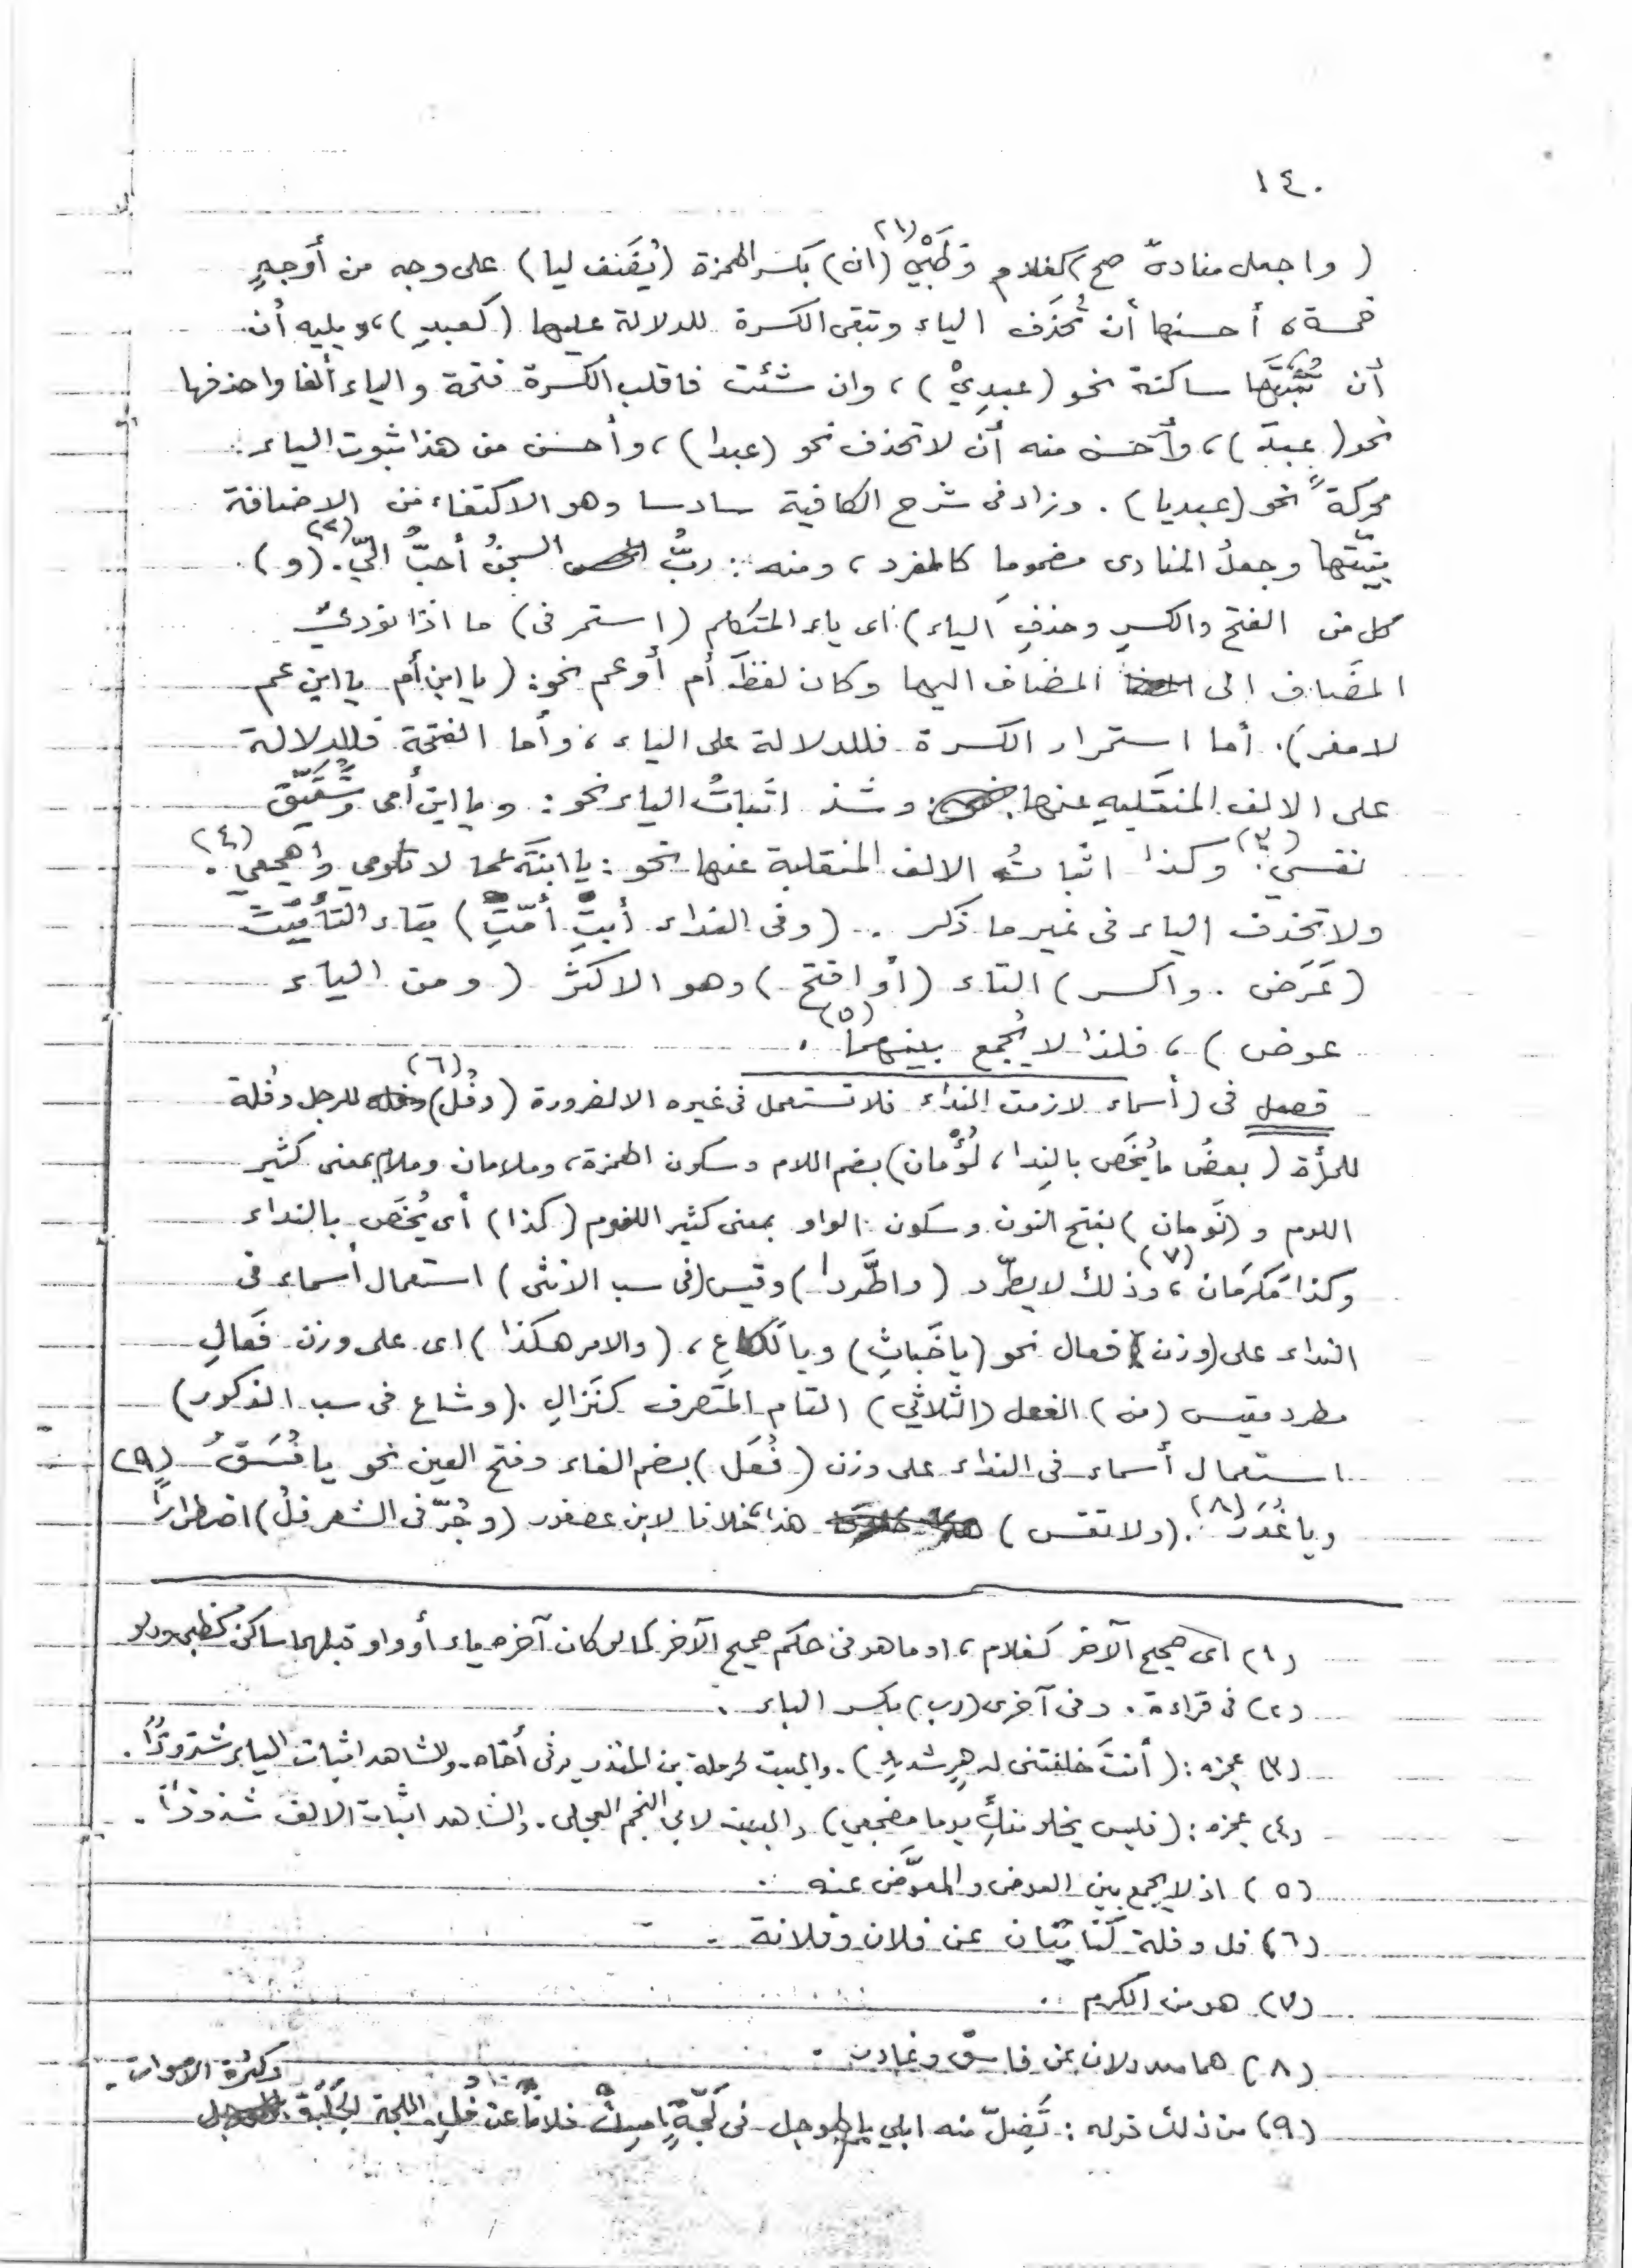 ١٤٠
( واجعل منادىً صح ) كغلام وَظَبْيٍ (١) (ان) بكسر الهمزة (يُضَف ليا) على وجه من أوجهٍ
خمسة، أحسنها أن تُحذَف الياء وتبقى الكسرة للدلالة عليها (كعبدِ)، ويليه أن
أن تُثبِتَها ساكنة نحو (عبدِيْ)، وان شئت فاقلب الكسرة فتحة والياء ألفا واحذفها
نحو (عبدَ)، وأحسن منه أن لا تحذف نحو (عبدا)، وأحسن من هذا ثبوت الياء
محركةً نحو (عبديا). وزاد في شرح الكافية سادسا وهو الاكتفاء من الاضافة
بنيّتها وجعلُ المنادى مضموما كالمفرد، ومنه: ربُّ السجنُ أحبُّ اليّ (٢). (و)
كل من الفتح والكسرِ وحذفِ الياء) اى ياء المتكلم (استمر في) ما اذا نودى
المضاف الى المضاف اليها وكان لفظَ أم أو عم نحو: (يا ابن أم يا ابن عم
لا مفر). أما استمرار الكسرة فللدلالة على الياء، وأما الفتحة فللدلالة
على الالف المنقلبةِ عنها. وشذ اثباتُ الياء نحو: ويا ابن أمى وشُقَيِّق
نفسي (٣). وكذا اثباتُ الالف المنقلبة عنها نحو: يا ابنَةَ عما لا تلومى واهجعي (٤).
ولا تحذف الياء في غير ما ذكر. (وفى النداء أبتِ أمّتِ) بتاء التأنيث
(عَرَض. واكسر) التاء (أو افتح) وهو الاكثَرُ (ومن الياء
عوض)، فلذا لا يُجمع بينهما (٥).
فصل في (أسماء لازمت النداء فلا تستعمل في غيره الا لضرورة (وفُل) (٦) للرجل وفُلة
للمرأة (بعضُ ما يُخَص بالنِدا، لُؤْمان) بضم اللام وسكون الهمزة، وملامان وملام بمعنى كثير
اللوم و (نَومان) بفتح النون وسكون الواو بمعنى كثير النوم (كذا) أى يُخَص بالنداء
وكذا مَكرَمان (٧)، وذلك لا يطّرد (واطَّردا) وقيس (في سب الانثى) استعمال أسماء في
النداء على (وزن) فعال نحو (يا خَباثِ) ويا لَكاعِ، (والامر هكذا) اى على وزن فَعالِ
مطرد مقيس (من) الفعل (الثُلاثي) التام المتصرف كنَزالِ. (وشاع في سب الذكور)
استعمال أسماء في النداء على وزن (فُعَل) بضم الفاء وفتح العين نحو يا فُسَقُ
ويا غُدَرُ (٨). (ولا تقس) هذا، خلافا لابن عصفور (وجُرّ في الشعر فلُ) اضطراراً (٩)
(١) اى صحيح الآخر كغلام، او ما هو في حكم صحيح الآخر كما لو كان آخره ياء أو واو قبلهما ساكن كظبي ودلو
(٢) في قراءة. وفي أخرى (رب) بكسر الباء.
(٣) عجزه: (أنتَ خلفتنى لدهرٍ شديدِ). والبيت لحرملة بن المنذر يرثى أخاه. والشاهد اثبات الياء شذوذاً.
(٤) عجزه: (فليس يخلو منكِ يوما مضجعي) والبيت لابي النجم العجلى. والشاهد اثبات الالف شذوذاً.
(٥) اذ لا يجمع بين العوض والمعوَّض عنه.
(٦) فل وفلة كنايتان عن فلان وفلانة.
(٧) هو من الكرم.
(٨) هما معدولان عن فاسق وغادر.
(٩) من ذلك قوله: تَضِلّ منه ابلي بالهوجل في لَجّةٍ امسِك فلانا عن فُلِ. اللجة الجَلَبَة وكثرة الاصوات.